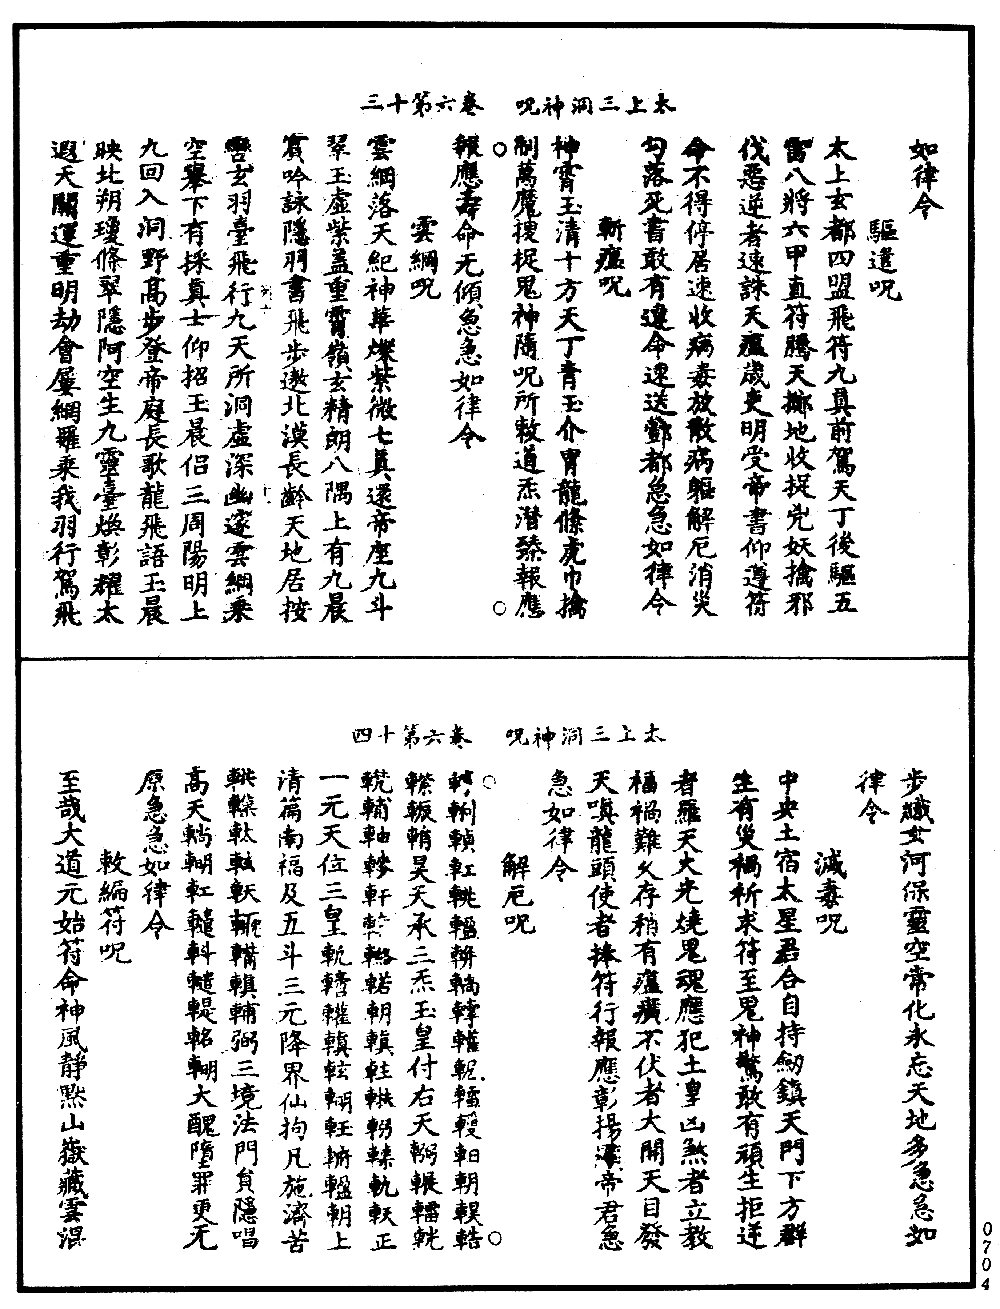 太上三洞神呪　卷六第十三
如律令
驅遣呪
太上玄都四盟飛符九真前駕天丁後驅五
雷八將六甲直符騰天擲地收捉兇妖擒邪
伐惡逆者速誅天瘟歲吏明受帝書仰遵符
命不得停居速收病毒放散病軀解厄消災
勾落死書敢有違命速送酆都急急如律令
斬瘟呪
神霄玉清十方天丁青玉介冑龍絛虎巾擒
制萬魔搜捉鬼神隨呪所敕道炁潜臻報應
報應壽命无傾急急如律令
雲綱呪
雲綱落天紀神華燦紫微七真還帝座九斗
翠玉虛紫蓋重霄嶺玄精朗八隅上有九晨
賓吟詠隱羽書飛步遨北漠長齡天地居按
轡玄羽臺飛行九天所洞虛深幽邃雲綱乘
空舉下有採真士仰招玉晨侶三周陽明上
九回入洞野高步登帝庭長歌龍飛語玉晨
映北朔瓊條翠隱阿空生九靈臺煥彰耀太
遐天關運重明劫會屢網羅乘我羽行駕飛
太上三洞神呪　卷六第十四
步躡女河保靈空常化永忘天地多急急如
律令
滅毒呪
中央土宿太星君合自持劒鎮天門下方群
生有災禍祈求符至鬼神驚敢有頑生拒逆
者羅天大光燒鬼魂應犯土皇凶煞者立教
福禍難久存稍有瘟㾮不伏者大開天目發
天嗔龍頭使者捧符行報應彰揚漢帝君急
急如律令
解厄呪
昊天承三炁玉皇付右天
一元天位三皇
清篇南福及五斗三元降界仙拘凡施濟苦
輔弼三境法門負隱唱
高天 大醜墮罪更无
原急急如律令
敕編符呪
至哉大道元始符命神風靜默山嶽藏雲混
0704